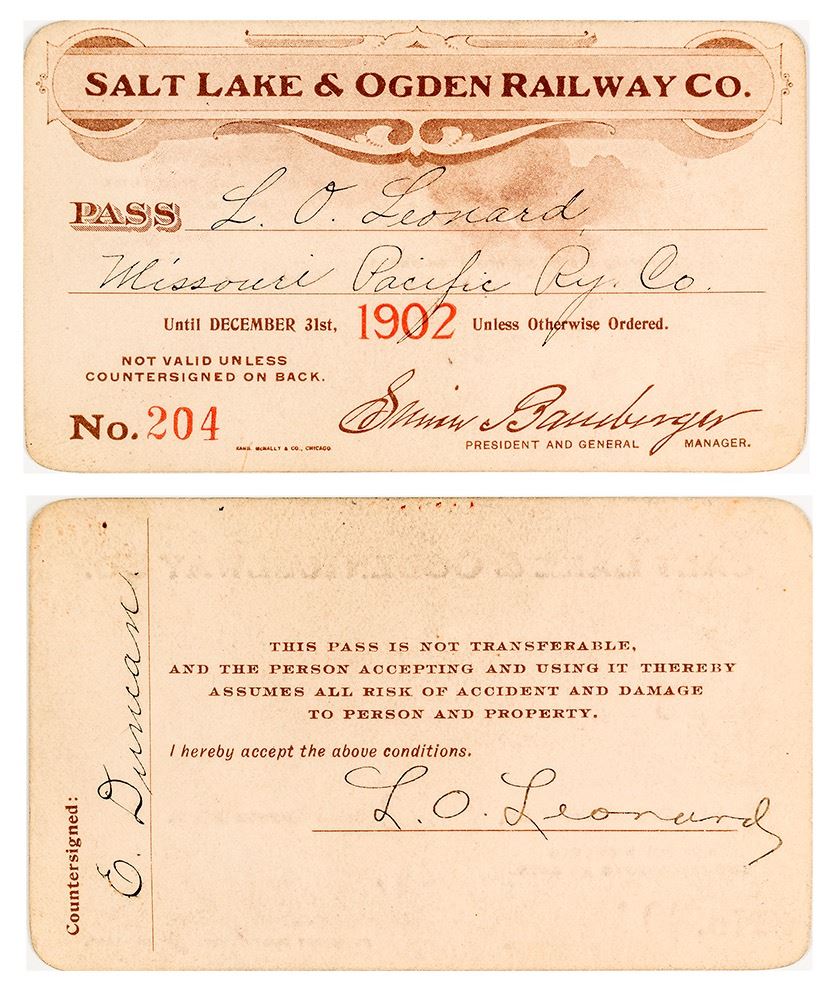 SALT LAKE & OGDEN RAILWAY CO.
PASS L. O. Leonard
Missouri Pacific Ry. Co.
Until DECEMBER 31st, 1902 Unless Otherwise Ordered.
NOT VALID UNLESS
COUNTERSIGNED ON BACK.
No. 204
Simon Bamberger
PRESIDENT AND GENERAL MANAGER.
RAND, McNALLY & CO., CHICAGO
Countersigned: E. Duncan.
THIS PASS IS NOT TRANSFERABLE,
AND THE PERSON ACCEPTING AND USING IT THEREBY
ASSUMES ALL RISK OF ACCIDENT AND DAMAGE
TO PERSON AND PROPERTY.
I hereby accept the above conditions.
L. O. Leonard